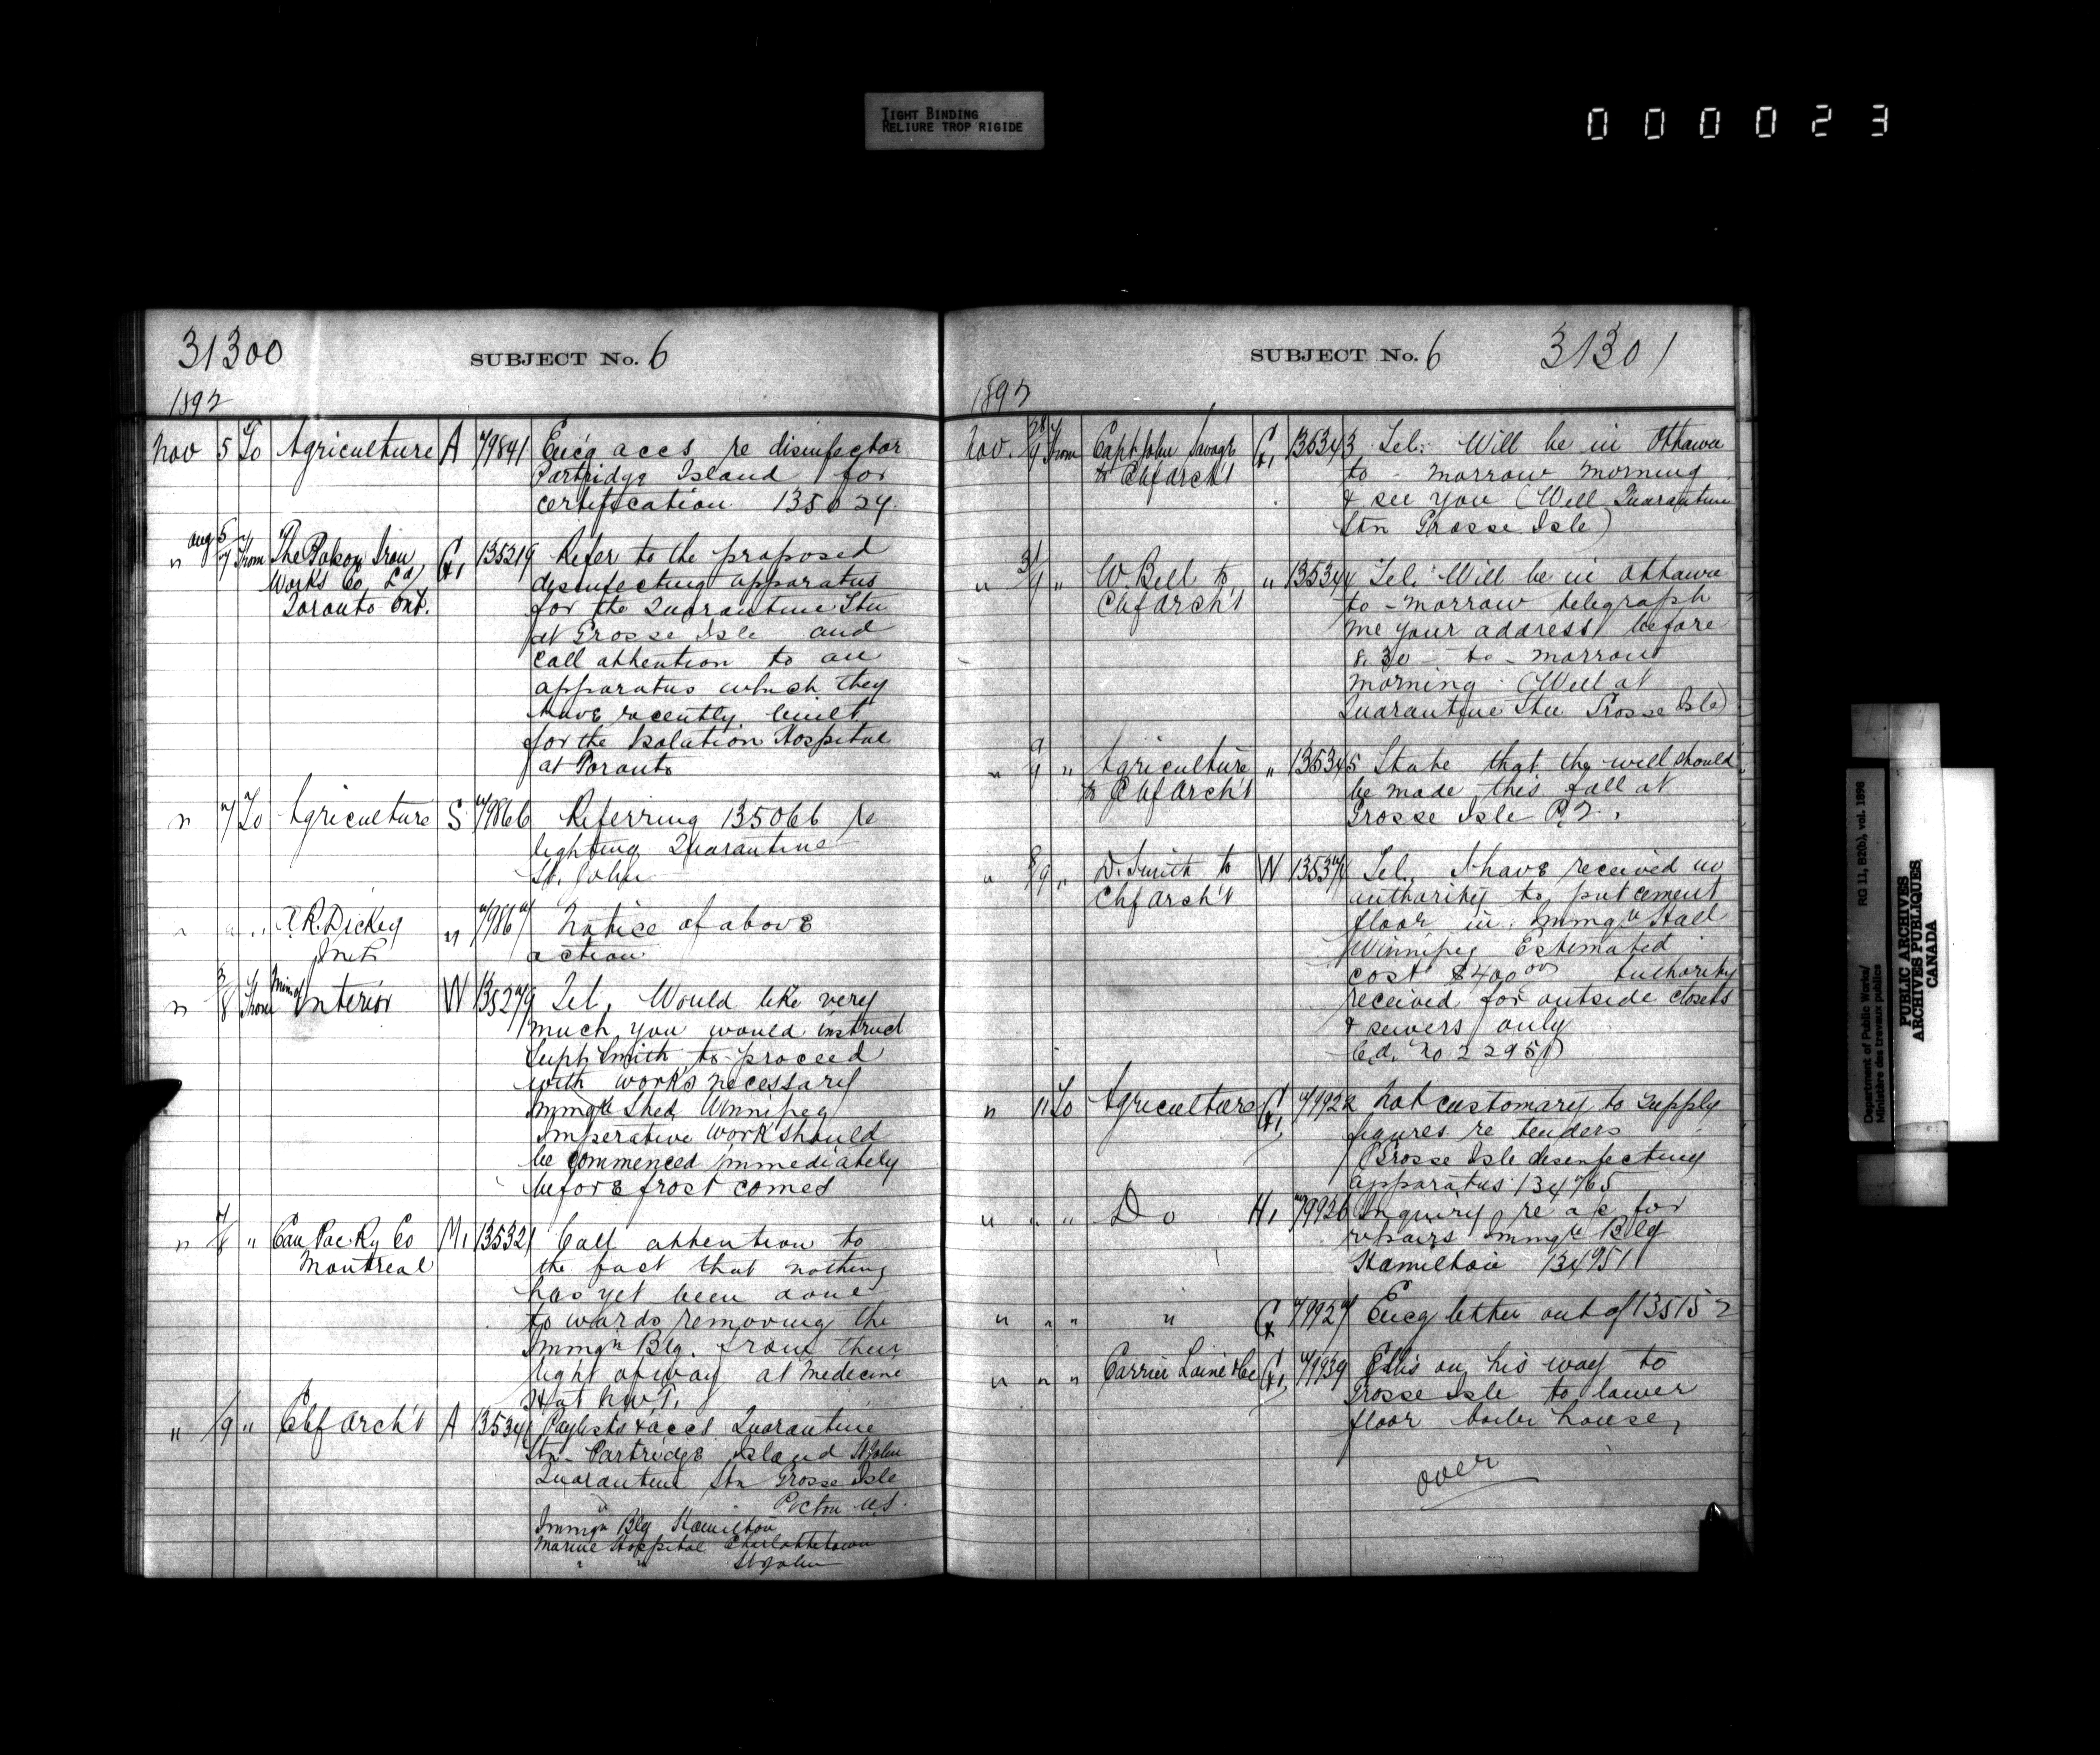 TIGHT BINDING
RELIURE TROP RIGIDE
000023
31300
SUBJECT No. 6
1892
Nov 5 To Agriculture A 79841 Enc'g accs re disinfector
Partridge Island for
certification 135024.
" Aug 5/7 From The Polson Iron Works Co Ld, Toronto Ont. G1 135219 Refer to the proposed
disinfecting apparatus
for the Quarantine Stn
at Grosse Isle and
call attention to an
apparatus which they
have recently built
for the Isolation Hospital
at Toronto
" 7 To Agriculture S 79866 Referring 135066 re
lighting Quarantine
St. John
" " " A.R. Dickey " 79867 Notice of above
action
" 3/8 From Min of Interior W 135279 Tel. Would like very
much you would instruct
Supt Smith to proceed
with works necessary
Immgn Shed Winnipeg
Imperative work should
be commenced immediately
before frost comes
" 7/8 " Can Pac Ry Co Montreal M1 135321 Call attention to
the fact that nothing
has yet been done
towards removing the
Immgn Blg. from their
right of way at Medecine
Hat N.W.T.
" /9 " Chf Arch't A 135341 Paylists & accs Quarantine
Stn Partridge Island St John
Quarantine Stn Grosse Isle
" Pictou N.S.
Immgn Blg Hamilton
Marine Hospital Charlottetown
" " St John
SUBJECT No. 6
31301
1892
Nov. 28/9 From Capt John Savage to Chf Arch't G1 135343 Tel: Will be in Ottawa
to-morrow morning
& see you (Well Quarantine
Stn Grosse Isle)
" 31/9 " W. Bell to Chf Arch't " 135344 Tel: Will be in Ottawa
to-morrow telegraph
me your address before
8.30 to-morrow
morning. (Well at
Quarantine Stn Grosse Isle)
" 9/9 " Agriculture to Chf Arch't " 135345 State that the well should
be made this fall at
Grosse Isle P.Q.
" 8/9 " D. Smith to Chf Arch't W Tel. I have received no
authority to put cement
floor in Immgn Hall
Winnipeg Estimated
cost $400.00 Authority
received for outside closets
& sewers only
" 11 To Agriculture G1 79922 Not customary to supply
figures re tenders
Grosse Isle disenfecting
apparatus 134765
" " " Do H1 79926 Inquiry re a/c for
repairs Immgn Blg
Hamilton 134951
" " " " G 79927 Encg letter out of 135152
" " " Carrier Lainé & Co G1 79939 Ellis on his way to
Grosse Isle to lower
floor boiler house,
over
Department of Public Works/
Ministère des travaux publics
RG 11, B2(b), vol. 1898
PUBLIC ARCHIVES
ARCHIVES PUBLIQUES
CANADA